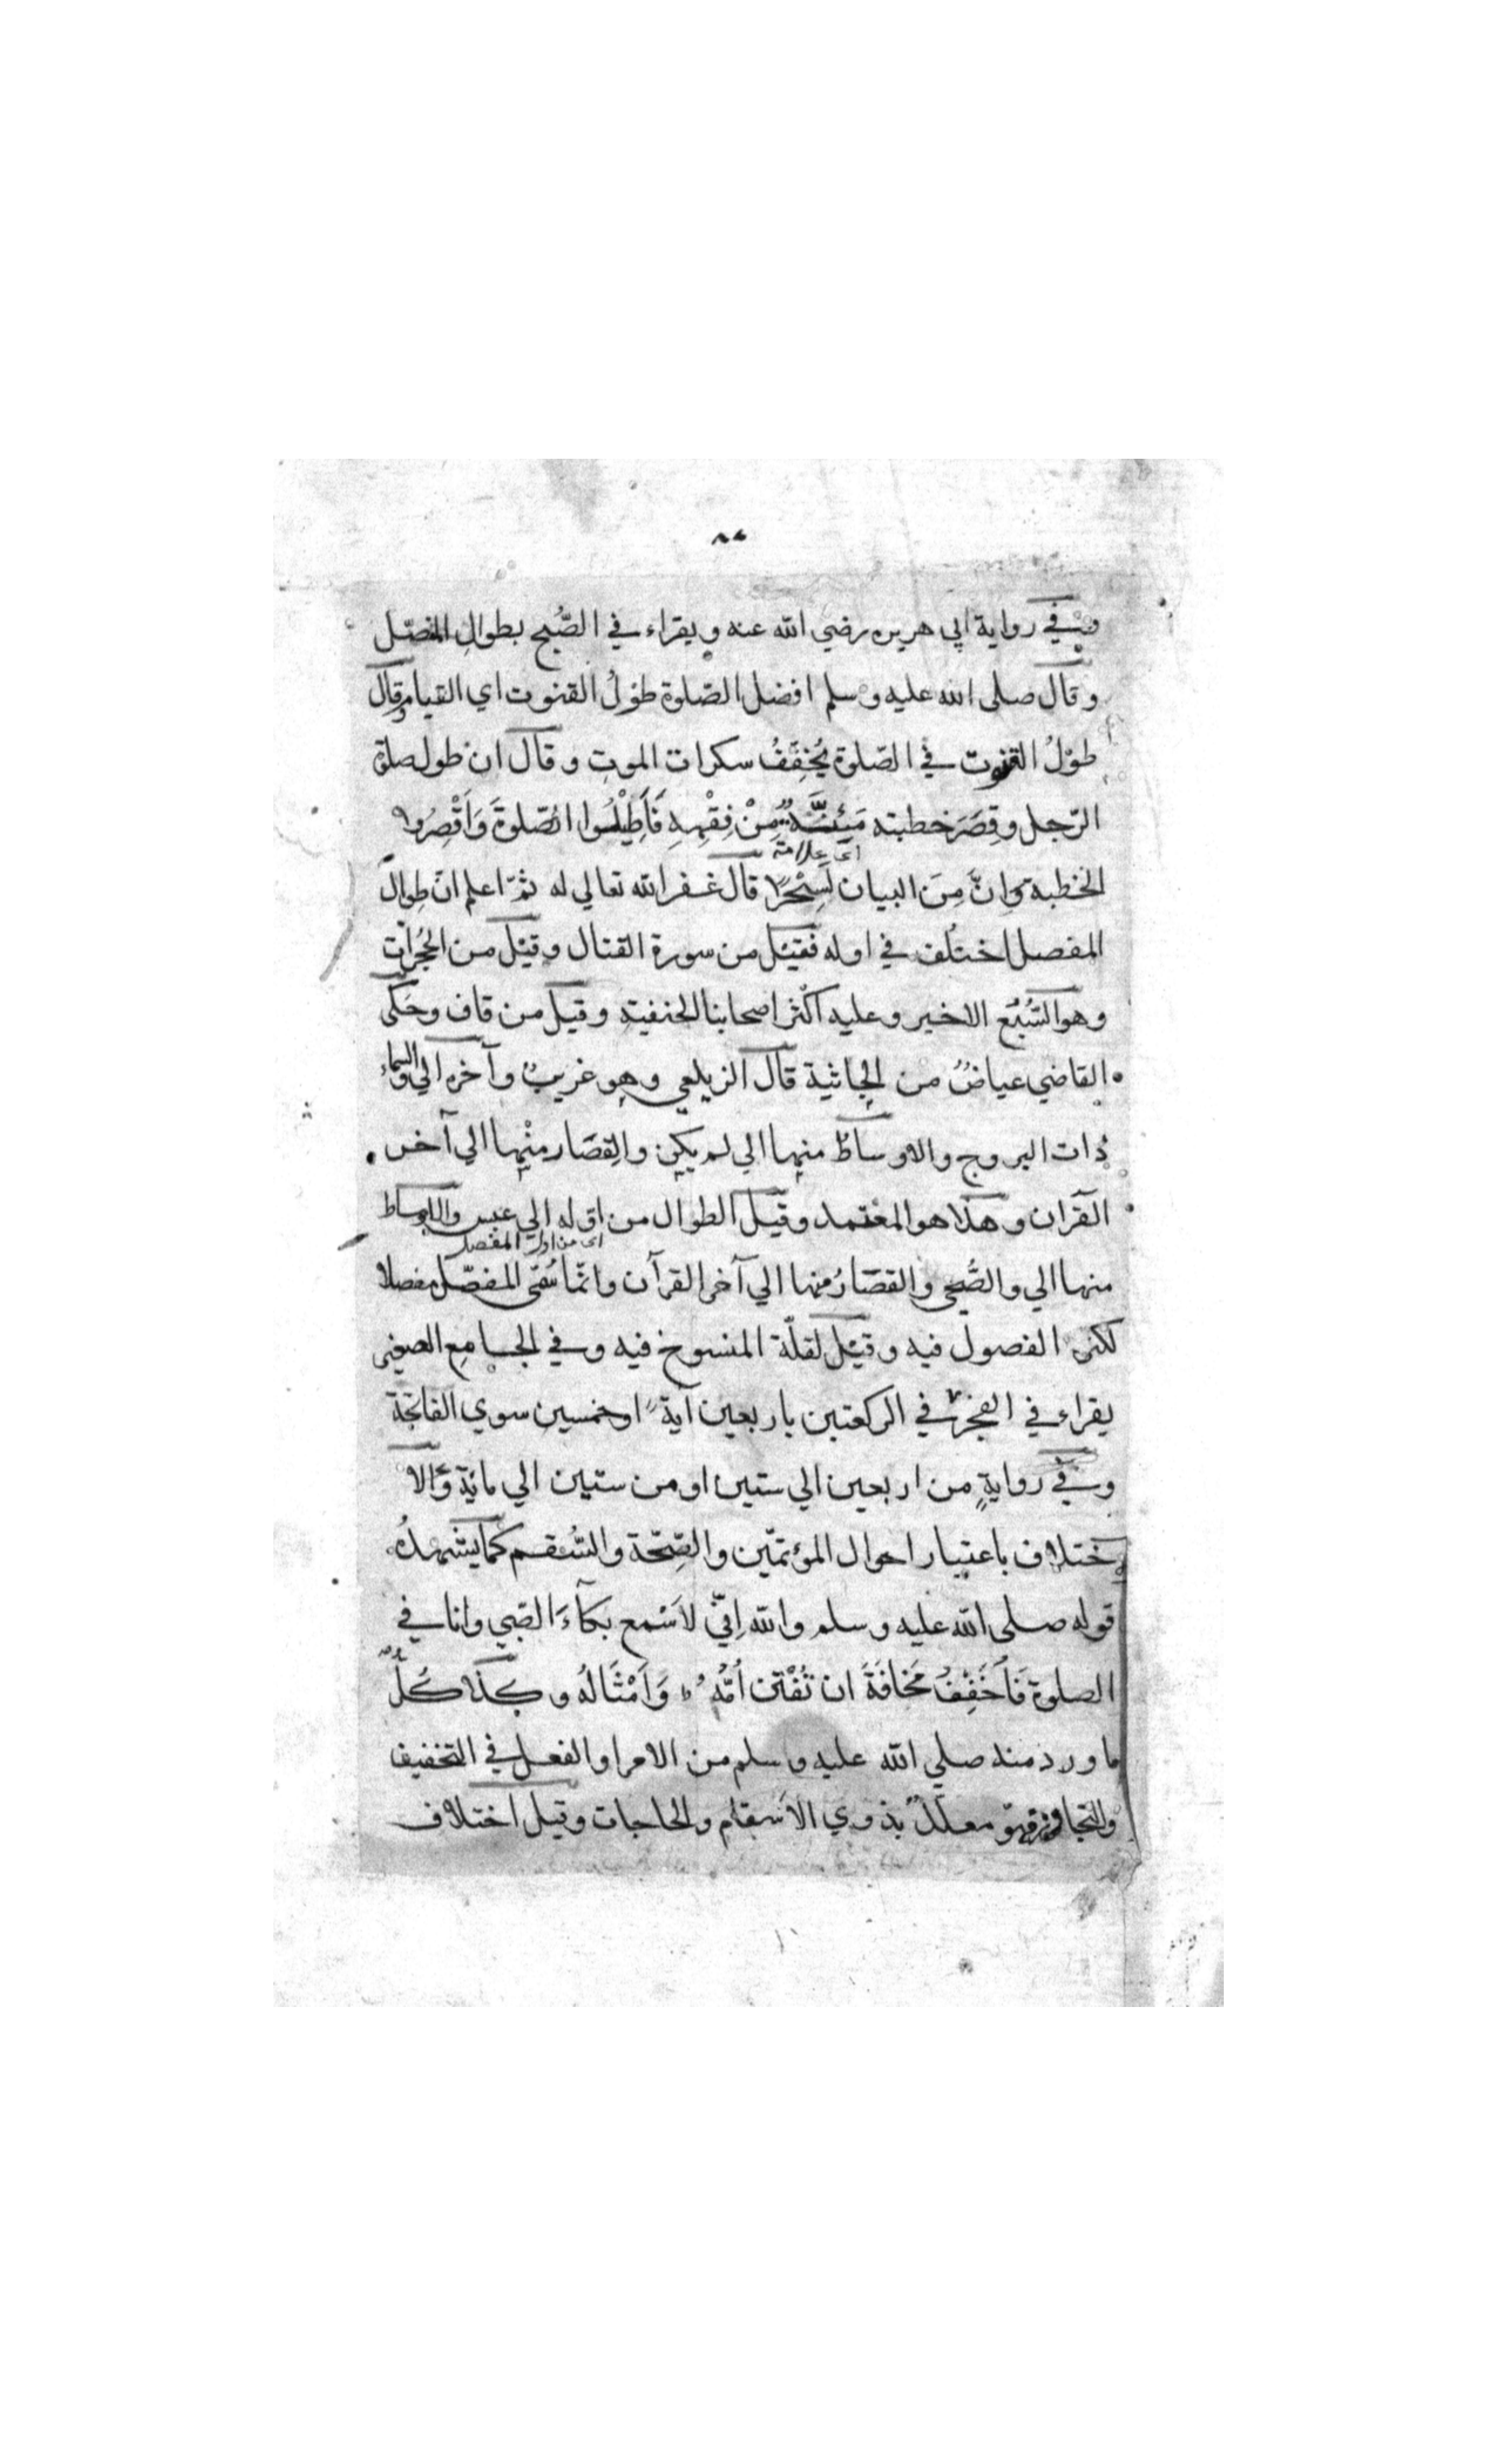 وفي رواية ابي هريره رضي الله عنه ويقراء في الصُّبح بطوالِ المفصّل
وقال صلى الله عليه وسلم افضل الصّلوة طوْلُ القنوت اي القيام وقال
طوْلُ القنوت في الصّلوة يُخفِّفُ سكرات الموتِ وقال ان طول صلوة
الرّجل وقِصَرَ خطبته مَئِنَّةٌ مِنْ فِقْهِهِ فَأَطِيْلُوا الصّلوةَ وَاَقْصِرُوا
اى علامة
الخطبة وَاِنَّ مِنَ البيان لَسِحْرًا قال غفر الله تعالي له ثمّ اعلم انّ طِوالَ
المفصل اختلف في اوله فقيْل من سورة القتال وقيْل من الحُجُرات
وهو السُّبُع الاخير وعليه اكثر اصحابنا الحنفيةِ وقيل من قاف وحَكَى
القاضي عياضٌ من الجاثية قال الزيلعي وهو غريبٌ وآخره الي والسماء
ذات البروج والاوساطُ منها الي لم يكن والقِصَار منْها الي آخر
القرآن وهذا هو المعْتمد وقيْل الطوال من اوّله الي عبس والاوساط
اى من اول المفصل
منها الي والضُّحى والقصَارُ منها الي آخر القرآن وانّما سُمّى المفصّل مفصلا
لكثرة الفصول فيه وقيْل لقلّة المنسوخ فيه وفي الجامِع الصغير
يقراء في الفجر في الركعتين باربعين آيةً او خمسين سوي الفاتحة
وفي روايةٍ من اربعين الي ستين او من ستين الي مائة وَالا
ختلاف باعتبار احوال المؤتمّين والصِّحّة والسُّقم كما يشهدُ
قوله صلى الله عليه وسلم والله اِنّي لاَسْمع بكآءَ الصّبي وانا في
الصلوة فَاُخَفِّفُ مَخافَةَ ان تُفْتن اُمُّهُ وَاَمْثَالُهُ وكذا كُلُّ
ما ورد منه صلي الله عليه وسلم من الامر او الفعل في التخفيف
والتجاوز فهوّ معلّلٌ بذوي الاَسقام والحاجات وقيل اختلاف